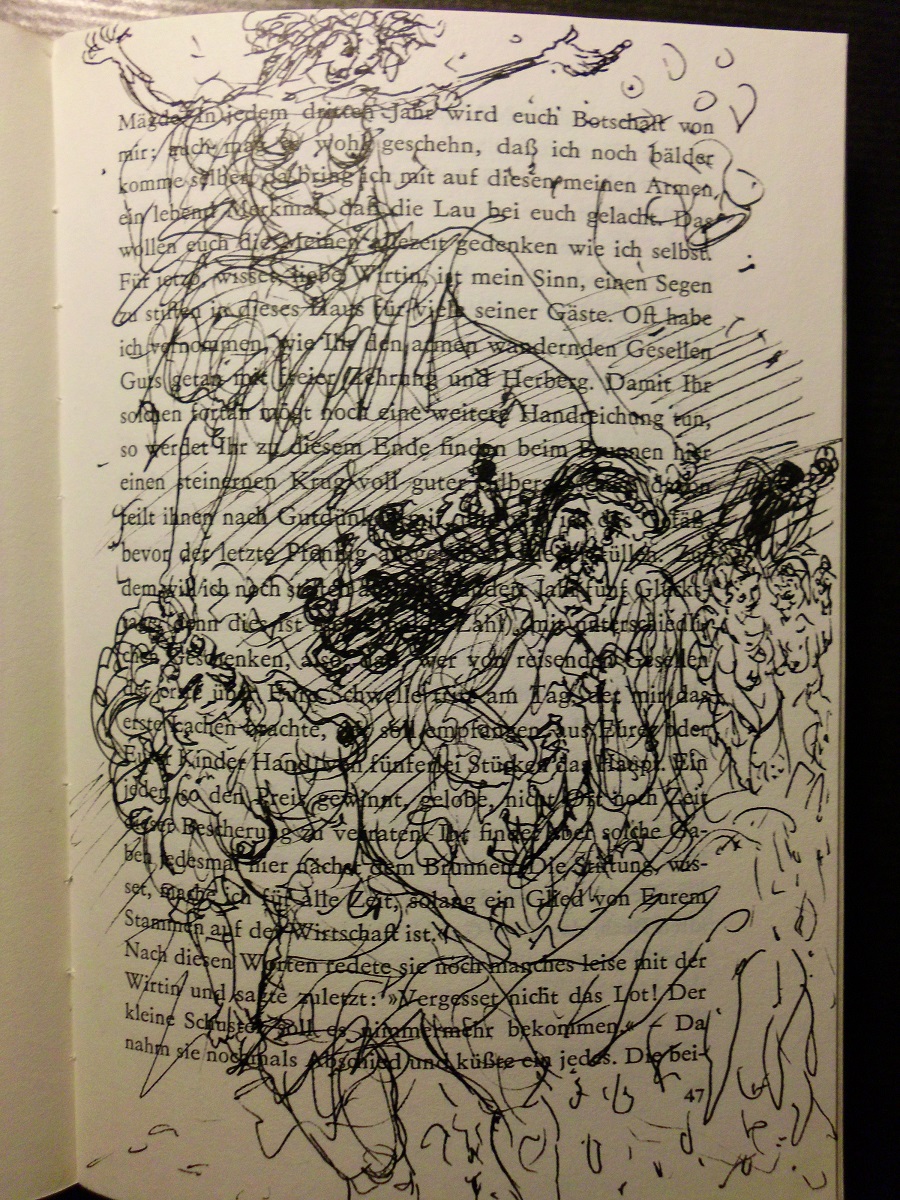 Mägde. In jedem dritten Jahr wird euch Botschaft von
mir; auch mag es wohl geschehn, daß ich noch bälder
komme selber, da bring ich mit auf diesen meinen Armen
ein lebend Merkmal, daß die Lau bei euch gelacht. Das
wollen euch die Meinen allezeit gedenken wie ich selbst.
Für jetzo, wisset, liebe Wirtin, ist mein Sinn, einen Segen
zu stiften in dieses Haus für viele seiner Gäste. Oft habe
ich vernommen, wie Ihr den armen wandernden Gesellen
Guts getan mit freier Zehrung und Herberg. Damit Ihr
solchen fortan mögt noch eine weitere Handreichung tun,
so werdet Ihr zu diesem Ende finden beim Brunnen hier
einen steinernen Krug voll guter
teilt ihnen nach Gutdünken mit
bevor der letzte Pfennig
dem will ich noch stiften Jahr fünf Glücks-
denn dies ist Zahl) mit unterschiedli-
chen Geschenken, also, daß, wer von reisenden Gesellen
der erste über Eure Schwelle tritt am Tag, der mir das
erste Lachen brachte, der soll empfangen aus Eurer oder
Eurer Kinder Hand von fünferlei Stücken das Haupt. Ein
jeder, so den Preis gewinnt, gelobe, nicht Ort noch Zeit
dieser Bescherung zu verraten. Ihr findet aber solche Ga-
ben jedesmal hier nächst dem Brunnen. Die Stiftung, wis-
set, mache ich für alle Zeit, solang ein Glied von Eurem
Stammen auf der Wirtschaft ist.«
Nach diesen Worten redete sie noch manches leise mit der
Wirtin und sagte zuletzt: »Vergesset nicht das Lot! Der
kleine Schuster soll es nimmermehr bekommen.« – Da
nahm sie nochmals Abschied und küßte ein jedes. Die bei-
47